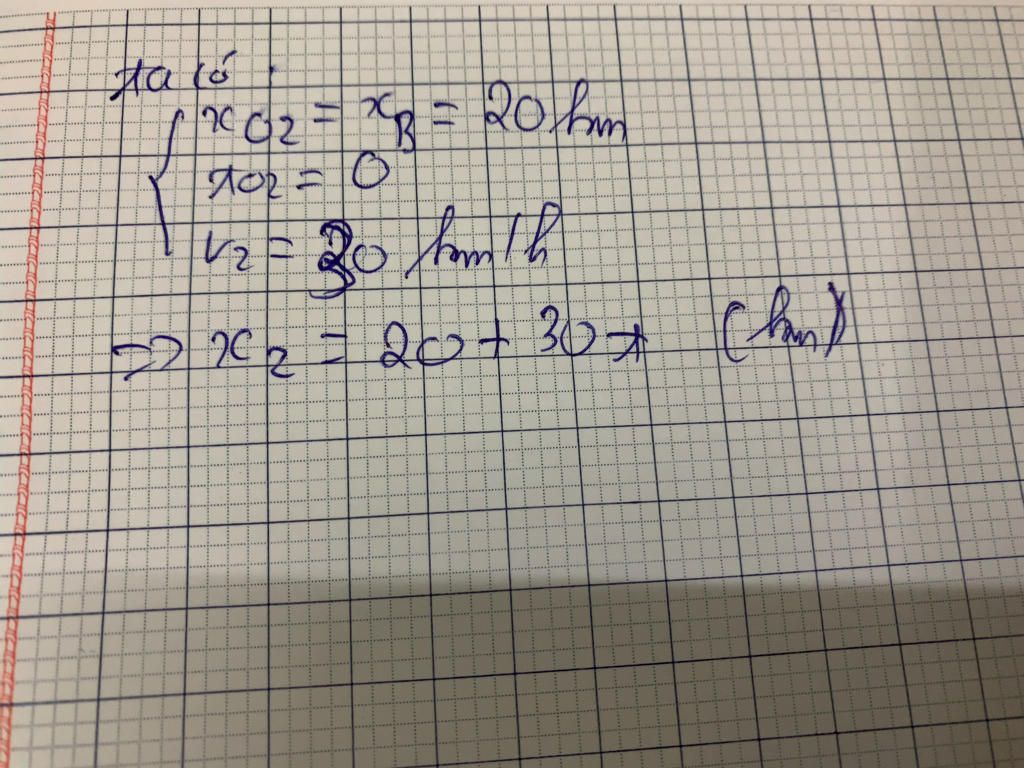 ta có:
x02 = xB = 20 km
t02 = 0
v2 = 30 km/h
=> x2 = 20 + 30t (km)